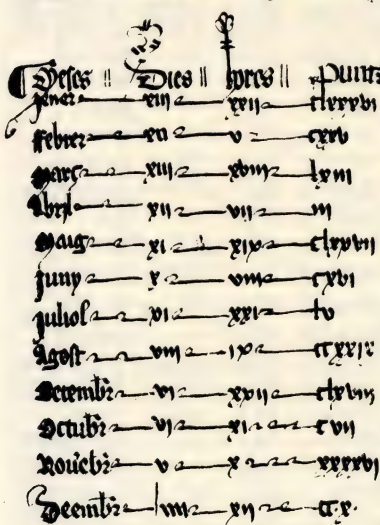 Meses Dies hores Puntz
Jener xiii xxii clxxxvi
Febrer xii v cxxv
Març xiii xviii lxiii
Abril xii vii iii
Maig xi xix clxxvii
juny x viii cxvi
juliol xi xxi lv
Agost viii ix ccxxix
Setembre vi xvii clxviii
Octubre vi xi cvii
Nouebre v x xxxxvi
Deembre iiii xii ccx